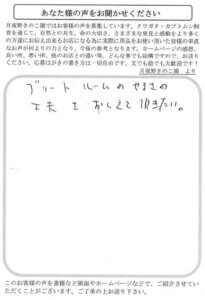 あなた様の声をお聞かせください
月夜野きのこ園ではお客様の声を募集しています。クワガタ・カブトムシ飼
育を通じて、自然との共生、命の大切さ、さまざまな発見と感動をより多く
の方達にお伝え出来るお店になる為に実際に用品をお使い頂いた皆様の率直
なお声が何よりの力となり、今後の参考となります。ホームページの感想、
良い所、悪い所、他のお店との違い等、どんな事でも結構ですので、お送り
ください。応募はがきの書き方は一切自由です。文でも絵でも大歓迎です!
月夜野きのこ園 より
ブリードルームのせまさの
工夫をおしえて頂きたい。
このお客様の声を書籍など紙面やホームページなどで、ご紹介させてい
ただくことがございます。ご了承の上お送り下さい。